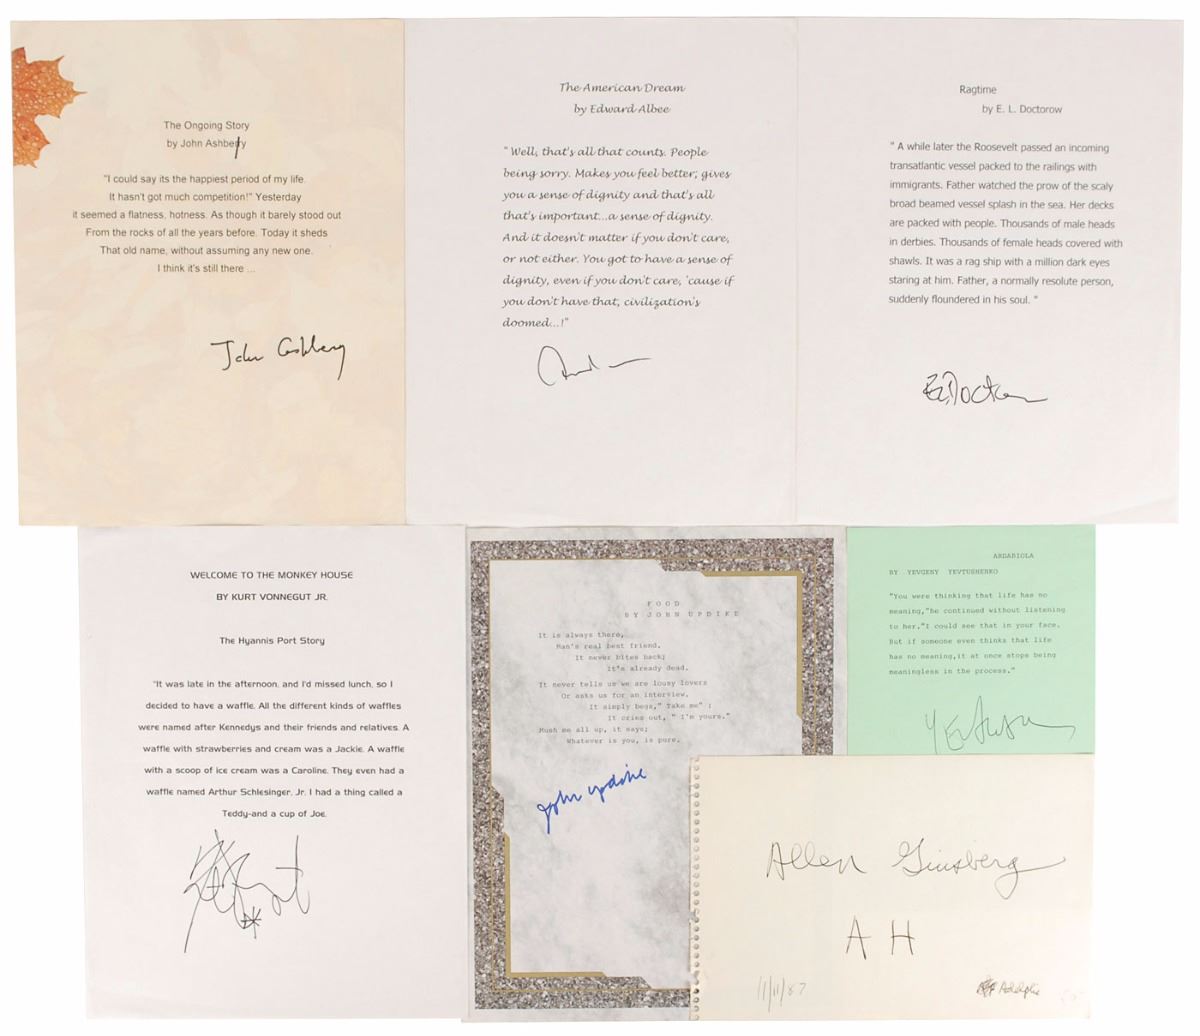 The Ongoing Story
by John Ashbery
"I could say its the happiest period of my life.
It hasn't got much competition!" Yesterday
it seemed a flatness, hotness. As though it barely stood out
From the rocks of all the years before. Today it sheds
That old name, without assuming any new one.
I think it's still there ...
John Ashbery
The American Dream
by Edward Albee
"Well, that's all that counts. People
being sorry. Makes you feel better; gives
you a sense of dignity and that's all
that's important...a sense of dignity.
And it doesn't matter if you don't care,
or not either. You got to have a sense of
dignity, even if you don't care, 'cause if
you don't have that, civilization's
doomed...!"
Ragtime
by E. L. Doctorow
" A while later the Roosevelt passed an incoming
transatlantic vessel packed to the railings with
immigrants. Father watched the prow of the scaly
broad beamed vessel splash in the sea. Her decks
are packed with people. Thousands of male heads
in derbies. Thousands of female heads covered with
shawls. It was a rag ship with a million dark eyes
staring at him. Father, a normally resolute person,
suddenly floundered in his soul. "
WELCOME TO THE MONKEY HOUSE
BY KURT VONNEGUT JR.
The Hyannis Port Story
"It was late in the afternoon, and I'd missed lunch, so I
decided to have a waffle. All the different kinds of waffles
were named after Kennedys and their friends and relatives. A
waffle with strawberries and cream was a Jackie. A waffle
with a scoop of ice cream was a Caroline. They even had a
waffle named Arthur Schlesinger, Jr. I had a thing called a
Teddy-and a cup of Joe.
FOOD
BY JOHN UPDIKE
It is always there,
Man's real best friend.
It never bites back;
It's already dead.
It never tells us we are lousy lovers
Or asks us for an interview.
It simply begs," Take me" ;
It cries out, " I'm yours."
Mush me all up, it says;
Whatever is you, is pure.
John Updike
ARDABIOLA
BY YEVGENY YEVTUSHENKO
"You were thinking that life has no
meaning,"he continued without listening
to her,"I could see that in your face.
But if someone even thinks that life
has no meaning,it at once stops being
meaningless in the process."
Allen Ginsberg
AH
11/11/87